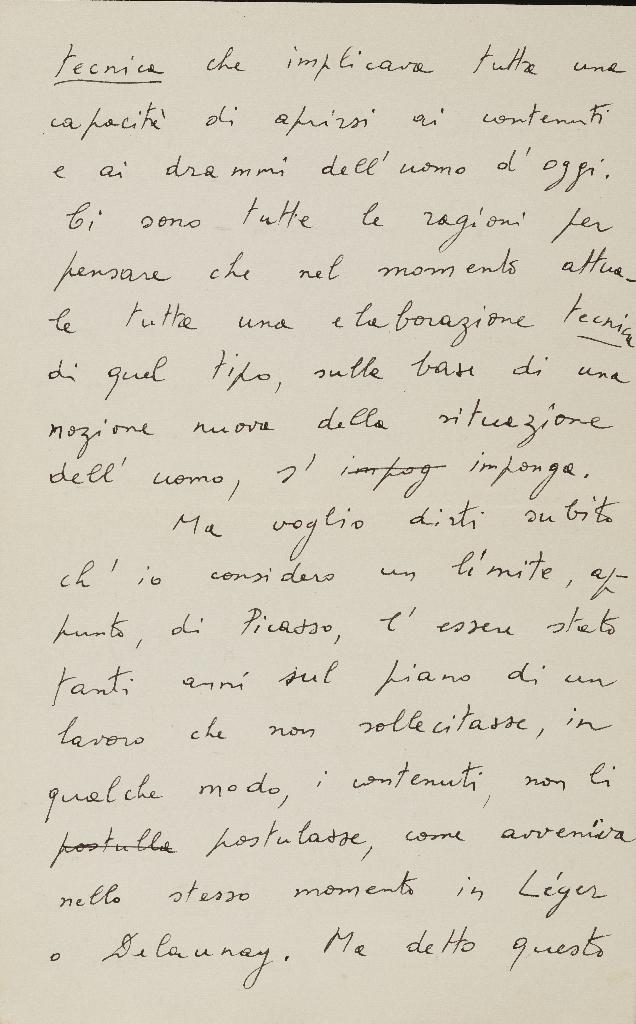 tecnica che implicava tutta una
capacità di aprirsi ai contenuti
e ai drammi dell'uomo d'oggi.
Ci sono tutte le ragioni per
pensare che nel momento attua-
le tutta una elaborazione tecnica
di quel tipo, sulla base di una
nozione nuova della situazione
dell'uomo, s'impog imponga.
Ma voglio dirti subito
ch'io considero un limite, ap-
punto, di Picasso, l'essere stato
tanti anni sul piano di un
lavoro che non sollecitasse, in
qualche modo, i contenuti, non li
postulla postulasse, come avveniva
nello stesso momento in Léger
o Delaunay. Ma detto questo